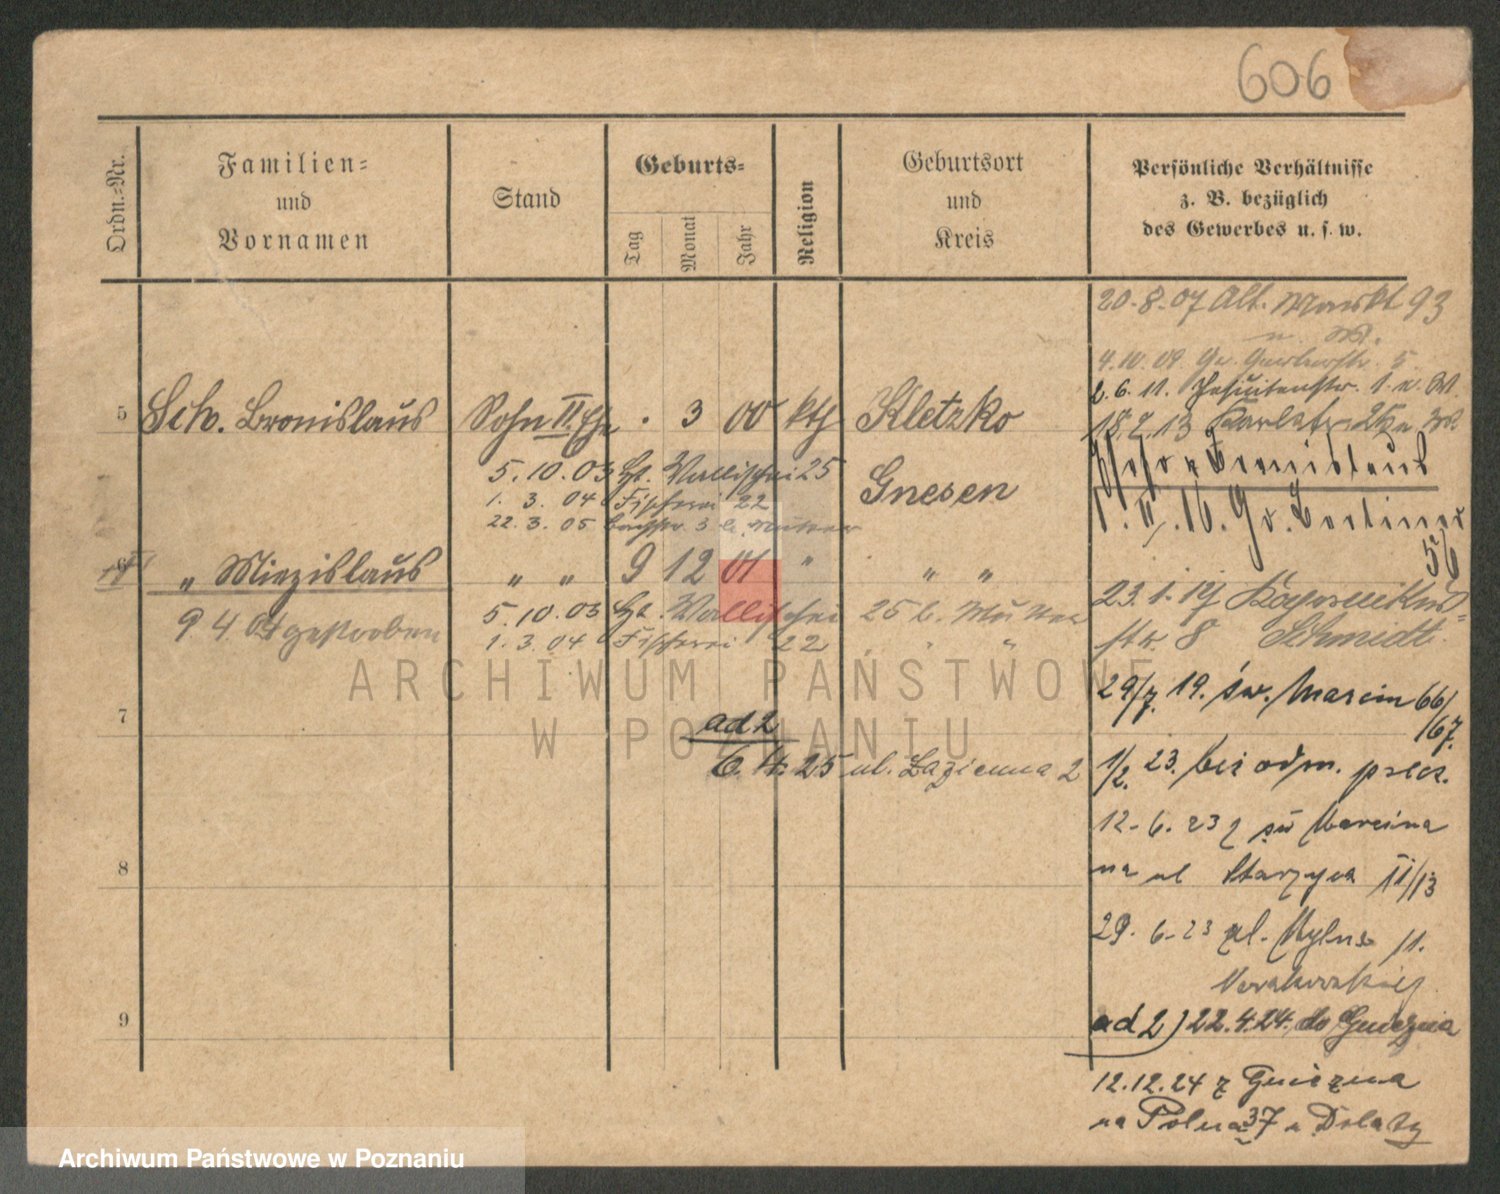 606
Ordn.-Nr.
Familien-
und
Vornamen
Stand
Geburts-
Tag
Monat
Jahr
Religion
Geburtsort
und
Kreis
Persönliche Verhältnisse
z. B. bezüglich
des Gewerbes u. s. w.
20-8-07 Alt. Markt 93
4.10.09 Gr. Gerberstr. 5
2.6.11. Jesuitenstr. 1.
5 Sch. Bronislaus Sohn II. Ehe . 3 00 kth Kletzko
18.2.13
5.10.03 Wallischei 25
Gnesen
1. 3. 04 Fischerei 22
22. 3. 05
1. II. 16. Gr. Berliner
5/6
6 " Miezislaus " " 9 12 01 " " "
9 4. 04 gestorben
5.10.03 Wallischei 25 b. Mutter
1. 3. 04 Fischerei 22 " "
23.1.17
str. 8 Schmidt.
29/7. 19. św. Marcin 66/
67.
7
ad 2
6. 4. 25 ul. Łazienna 2
1/2. 23. bei odm.
12-6.23 z św Marcina
na ul
II/13
8
29. 6-23 ul. 11.
9
ad 2) 22.4.24. do Gniezna
12.12.24 z Gniezna
na Polna 37
ARCHIWUM PAŃSTWOWE
W POZNANIU
Archiwum Państwowe w Poznaniu